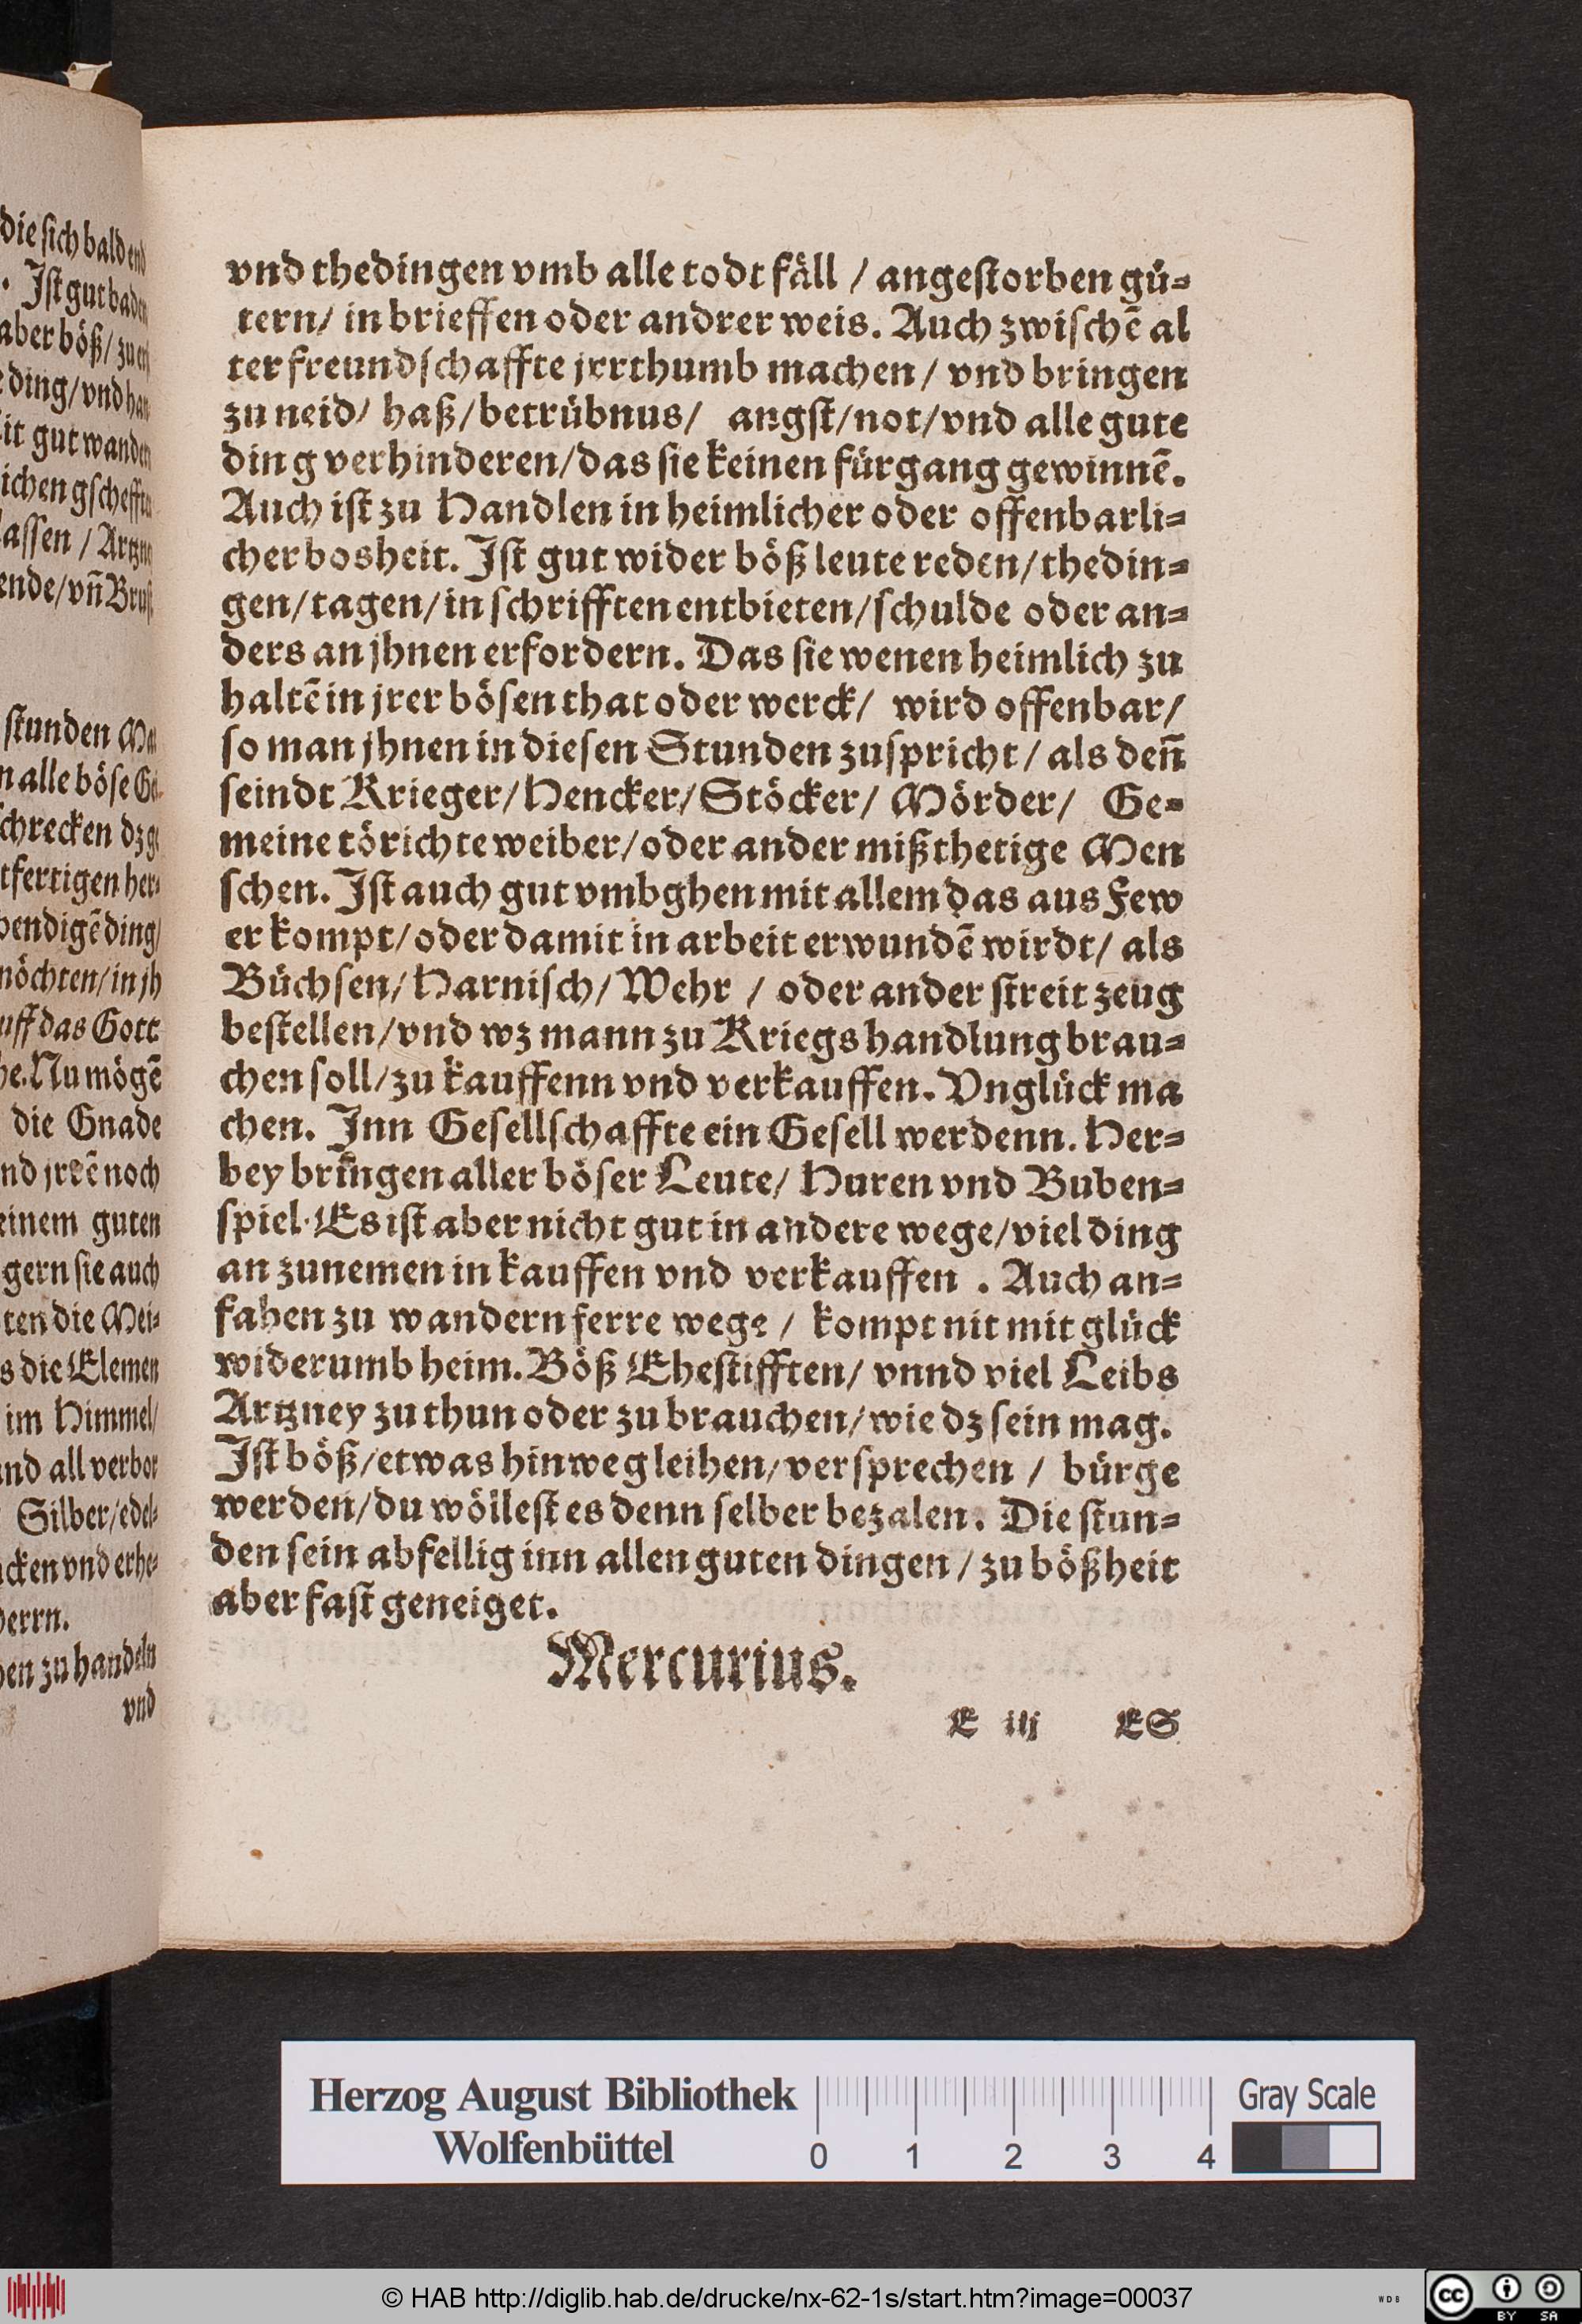 die sich bald end
. Ist gut baden
aber böß / zu
ding / vnd han
it gut wanden
ichen gscheff
assen / Artzne
ende / vñ Brust
stunden Ma
n alle böse G
chrecken dz g
tfertigen her
bendigẽ ding /
möchten / in jh
uff das Gott
he. Nu mögẽ
die Gnade
nd jrrẽ noch
einem guten
gern sie auch
ten die Mei⸗
s die Elemen
im Himmel /
nd all verbor
Silber / edel⸗
cken vnd erhe⸗
herrn.
en zu handeln
vnd
vnd thedingen vmb alle todt fäll / angestorben gü⸗
tern / in brieffen oder andrer weis. Auch zwischẽ al
ter freundschaffte jrrthumb machen / vnd bringen
zu neid / haß / betrübnus / angst / not / vnd alle gute
ding verhinderen / das sie keinen fürgang gewinnẽ.
Auch ist zu Handlen in heimlicher oder offenbarli⸗
cher bosheit. Ist gut wider böß leute reden / thedin⸗
gen / tagen / in schrifften entbieten / schulde oder an⸗
ders an jhnen erfordern. Das sie wenen heimlich zu
haltẽ in jrer bösen that oder werck / wird offenbar /
so man jhnen in diesen Stunden zuspricht / als deñ
seindt Krieger / Hencker / Stöcker / Mörder / Ge⸗
meine törichte weiber / oder ander mißthetige Men
schen. Ist auch gut vmbghen mit allem das aus Few
er kompt / oder damit in arbeit erwundẽ wirdt / als
Büchsen / Harnisch / Wehr / oder ander streit zeug
bestellen / vnd wz mann zu Kriegs handlung brau⸗
chen soll / zu kauffenn vnd verkauffen. Vnglück ma
chen. Inn Gesellschaffte ein Gesell werdenn. Her⸗
bey bringen aller böser Leute / Huren vnd Buben⸗
spiel. Es ist aber nicht gut in andere wege / viel ding
an zunemen in kauffen vnd verkauffen . Auch an⸗
fahen zu wandern ferre wege / kompt nit mit glück
widerumb heim. Böß Ehestifften / vnnd viel Leibs
Artzney zu thun oder zu brauchen / wie dz sein mag.
Ist böß / etwas hinweg leihen / versprechen / bürge
werden / du wöllest es denn selber bezalen. Die stun⸗
den sein abfellig inn allen guten dingen / zu bößheit
aber fast geneiget.
Mercurius.
E iij ES
Herzog August Bibliothek
Wolfenbüttel
0 1 2 3 4
Gray Scale
© HAB http://diglib.hab.de/drucke/nx-62-1s/start.htm?image=00037
WDB
cc BY SA